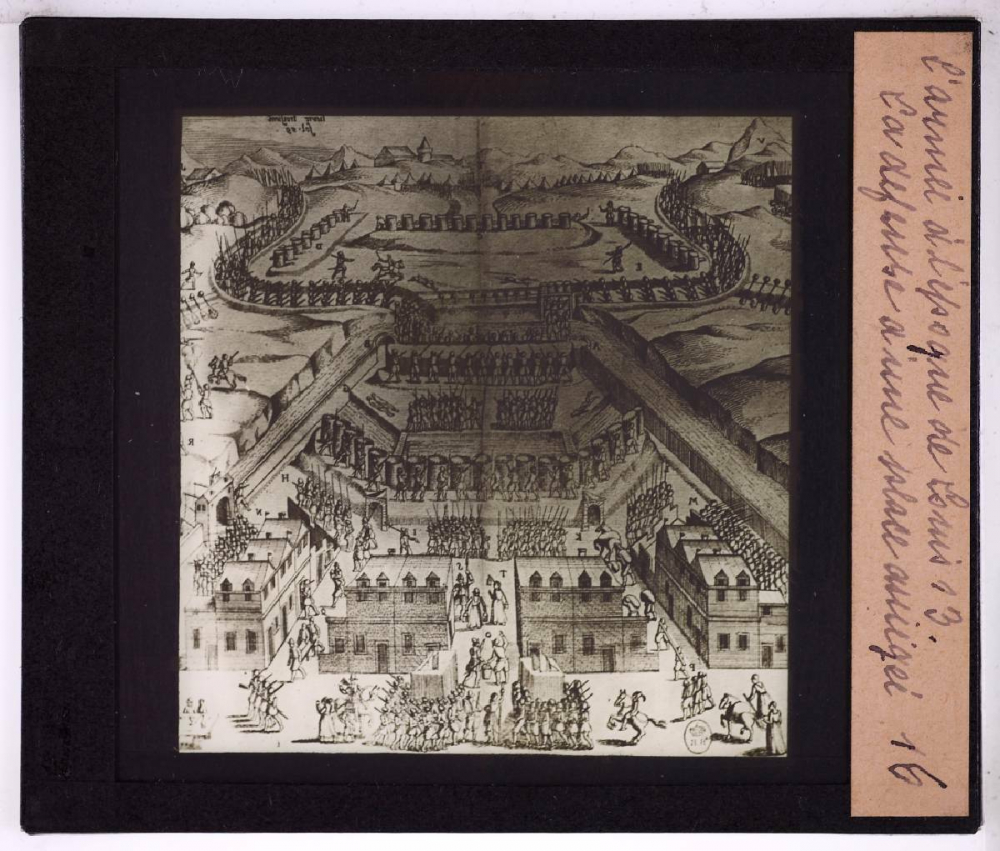 L'armée à l'époque de Louis 13.
La défense d'une place assiégée 16
V
D
E
A
R
H
M
N
I
S
T
P